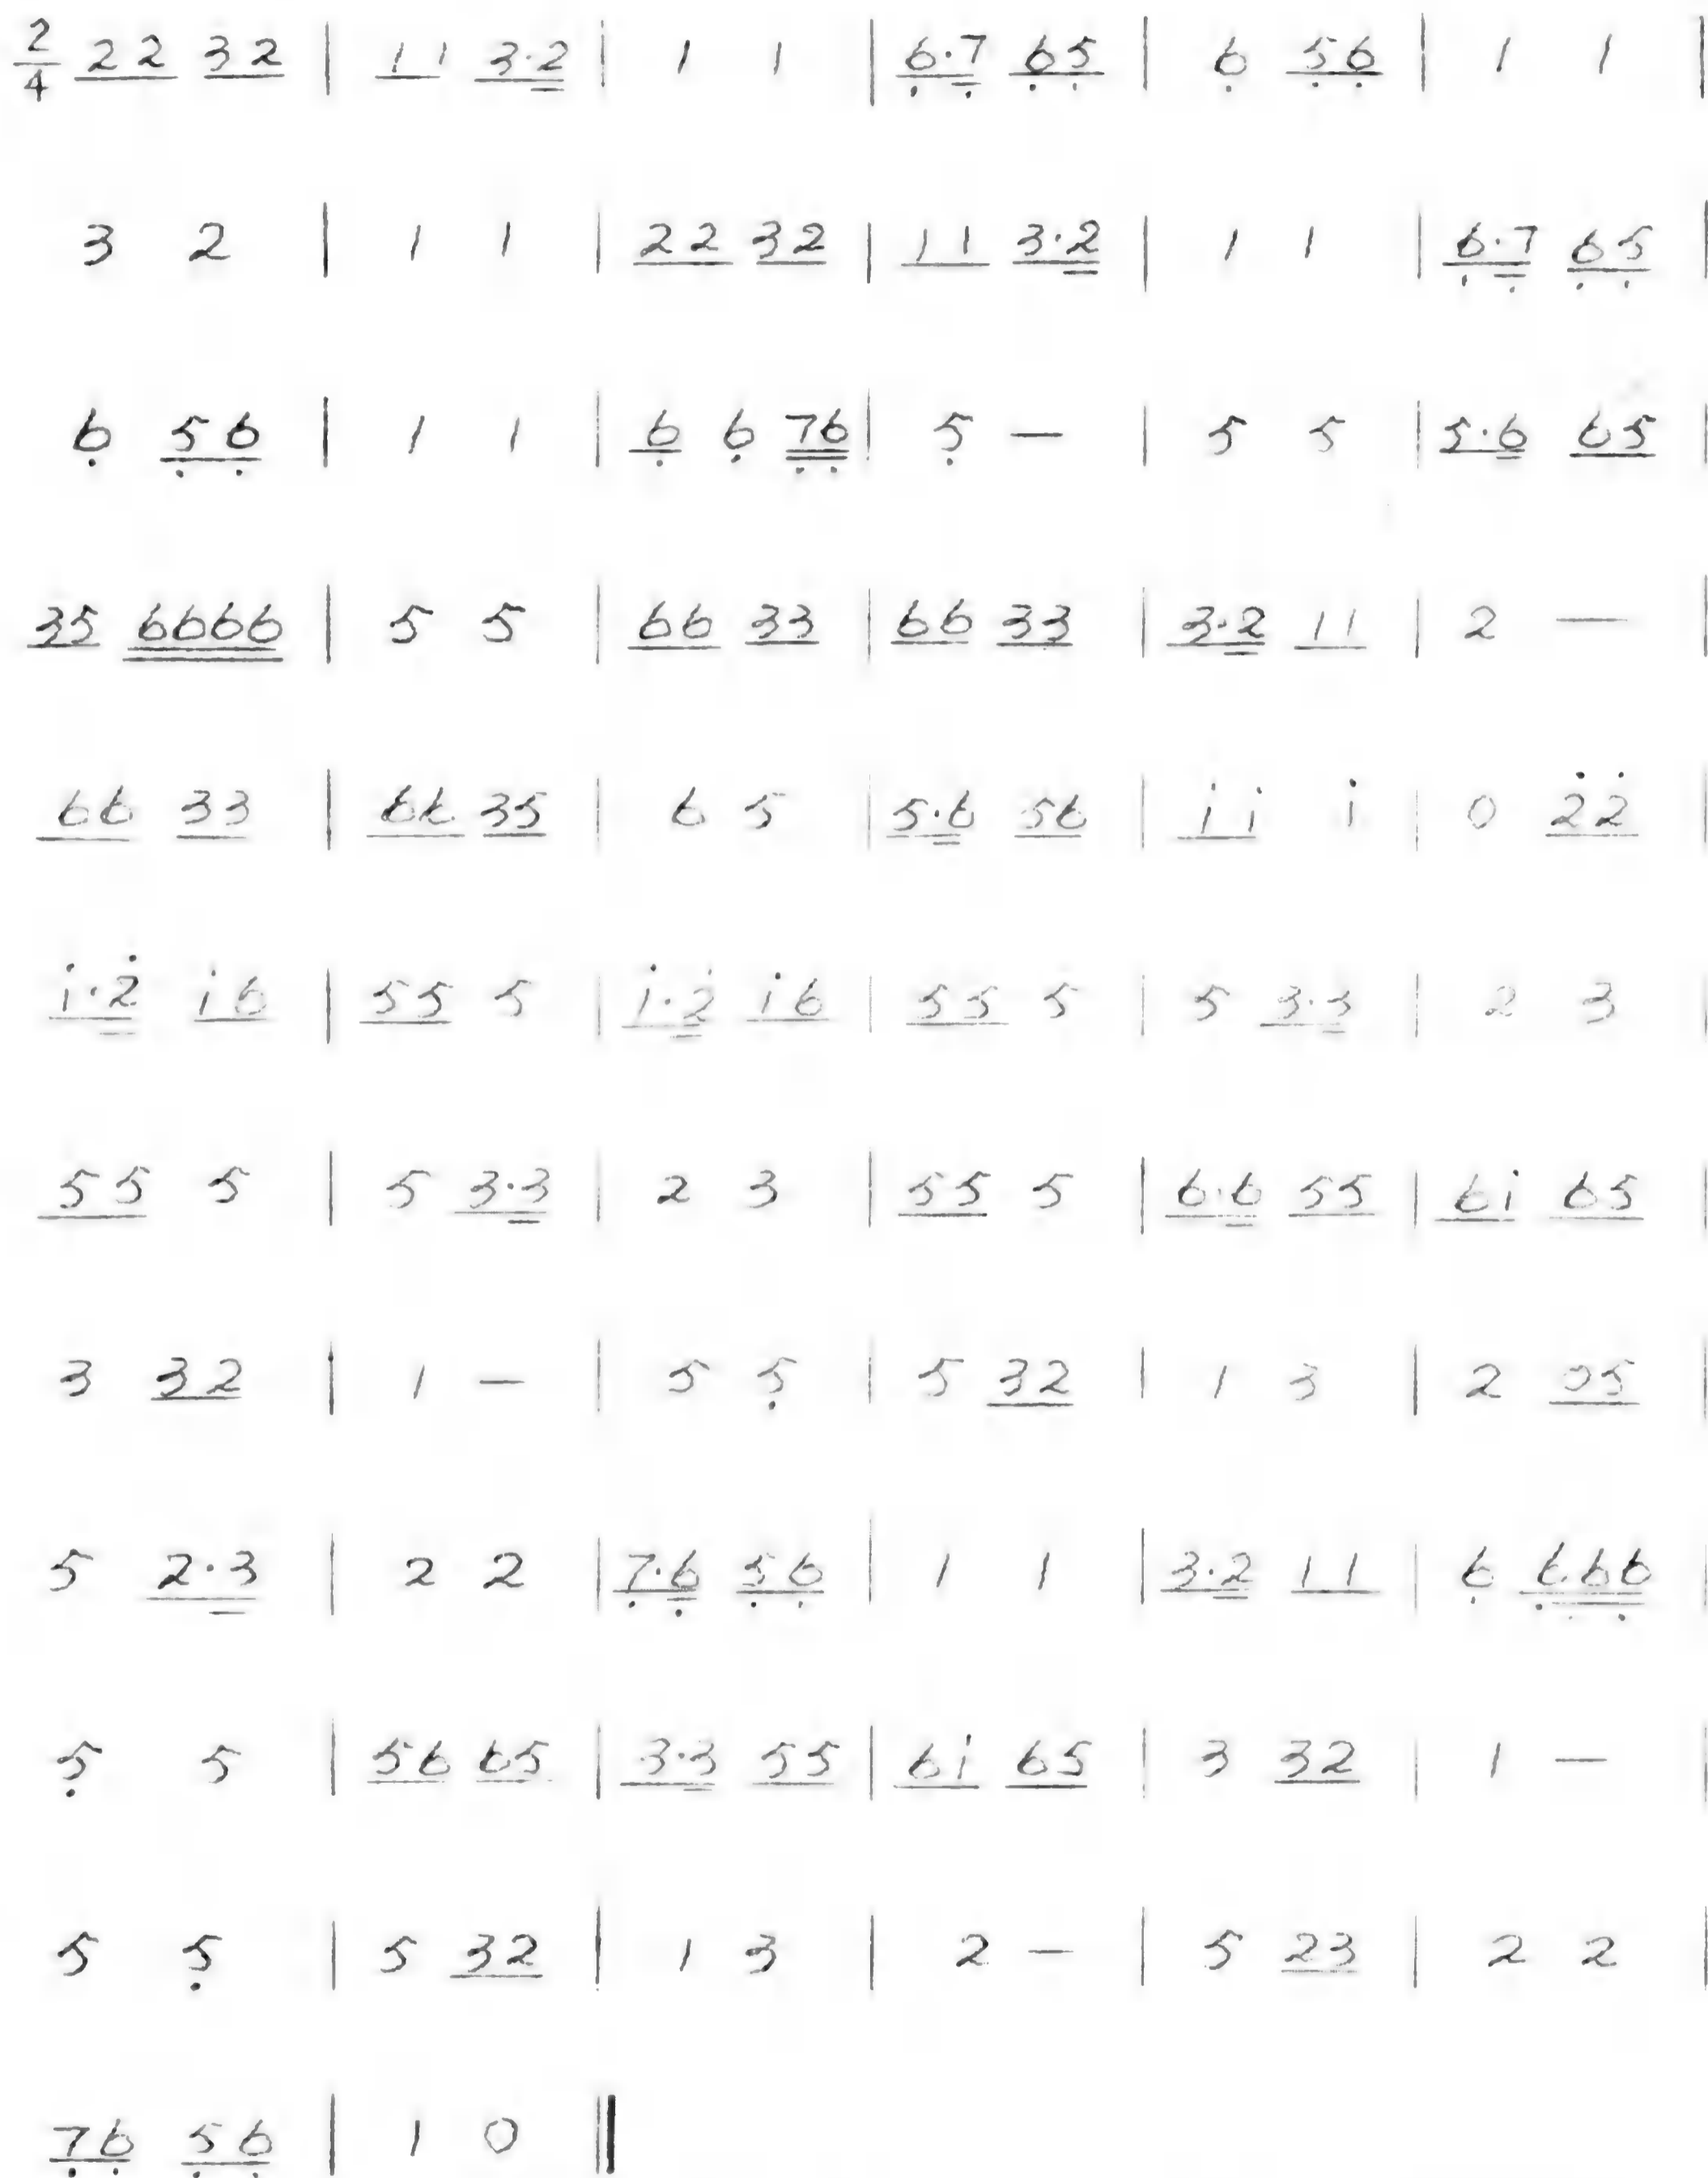 2/4 22 32 | 11 3·2 | 1 1 | 6·7 65 | 6 56 | 1 1 |
3 2 | 1 1 | 22 32 | 11 3·2 | 1 1 | 6·7 65 |
6 56 | 1 1 | 6 6 76 | 5 — | 5 5 | 5·6 65 |
35 6666 | 5 5 | 66 33 | 66 33 | 3·2 11 | 2 — |
66 33 | 66 35 | 6 5 | 5·6 56 | i i i | 0 2̇2̇ |
i·2̇ i6 | 55 5 | i·2̇ i6 | 55 5 | 5 3·3 | 2 3 |
55 5 | 5 3·3 | 2 3 | 55 5 | 6·6 55 | 6i 65 |
3 32 | 1 — | 5 5̣ | 5 32 | 1 3 | 2 05 |
5 2·3 | 2 2 | 7̣·6̣ 5̣6̣ | 1 1 | 3·2 11 | 6̣ 6̣6̣6̣ |
5̣ 5 | 56 65 | 3·3 55 | 6i 65 | 3 32 | 1 — |
5 5̣ | 5 32 | 1 3 | 2 — | 5 23 | 2 2 |
7̣6̣ 5̣6̣ | 1 0 ‖